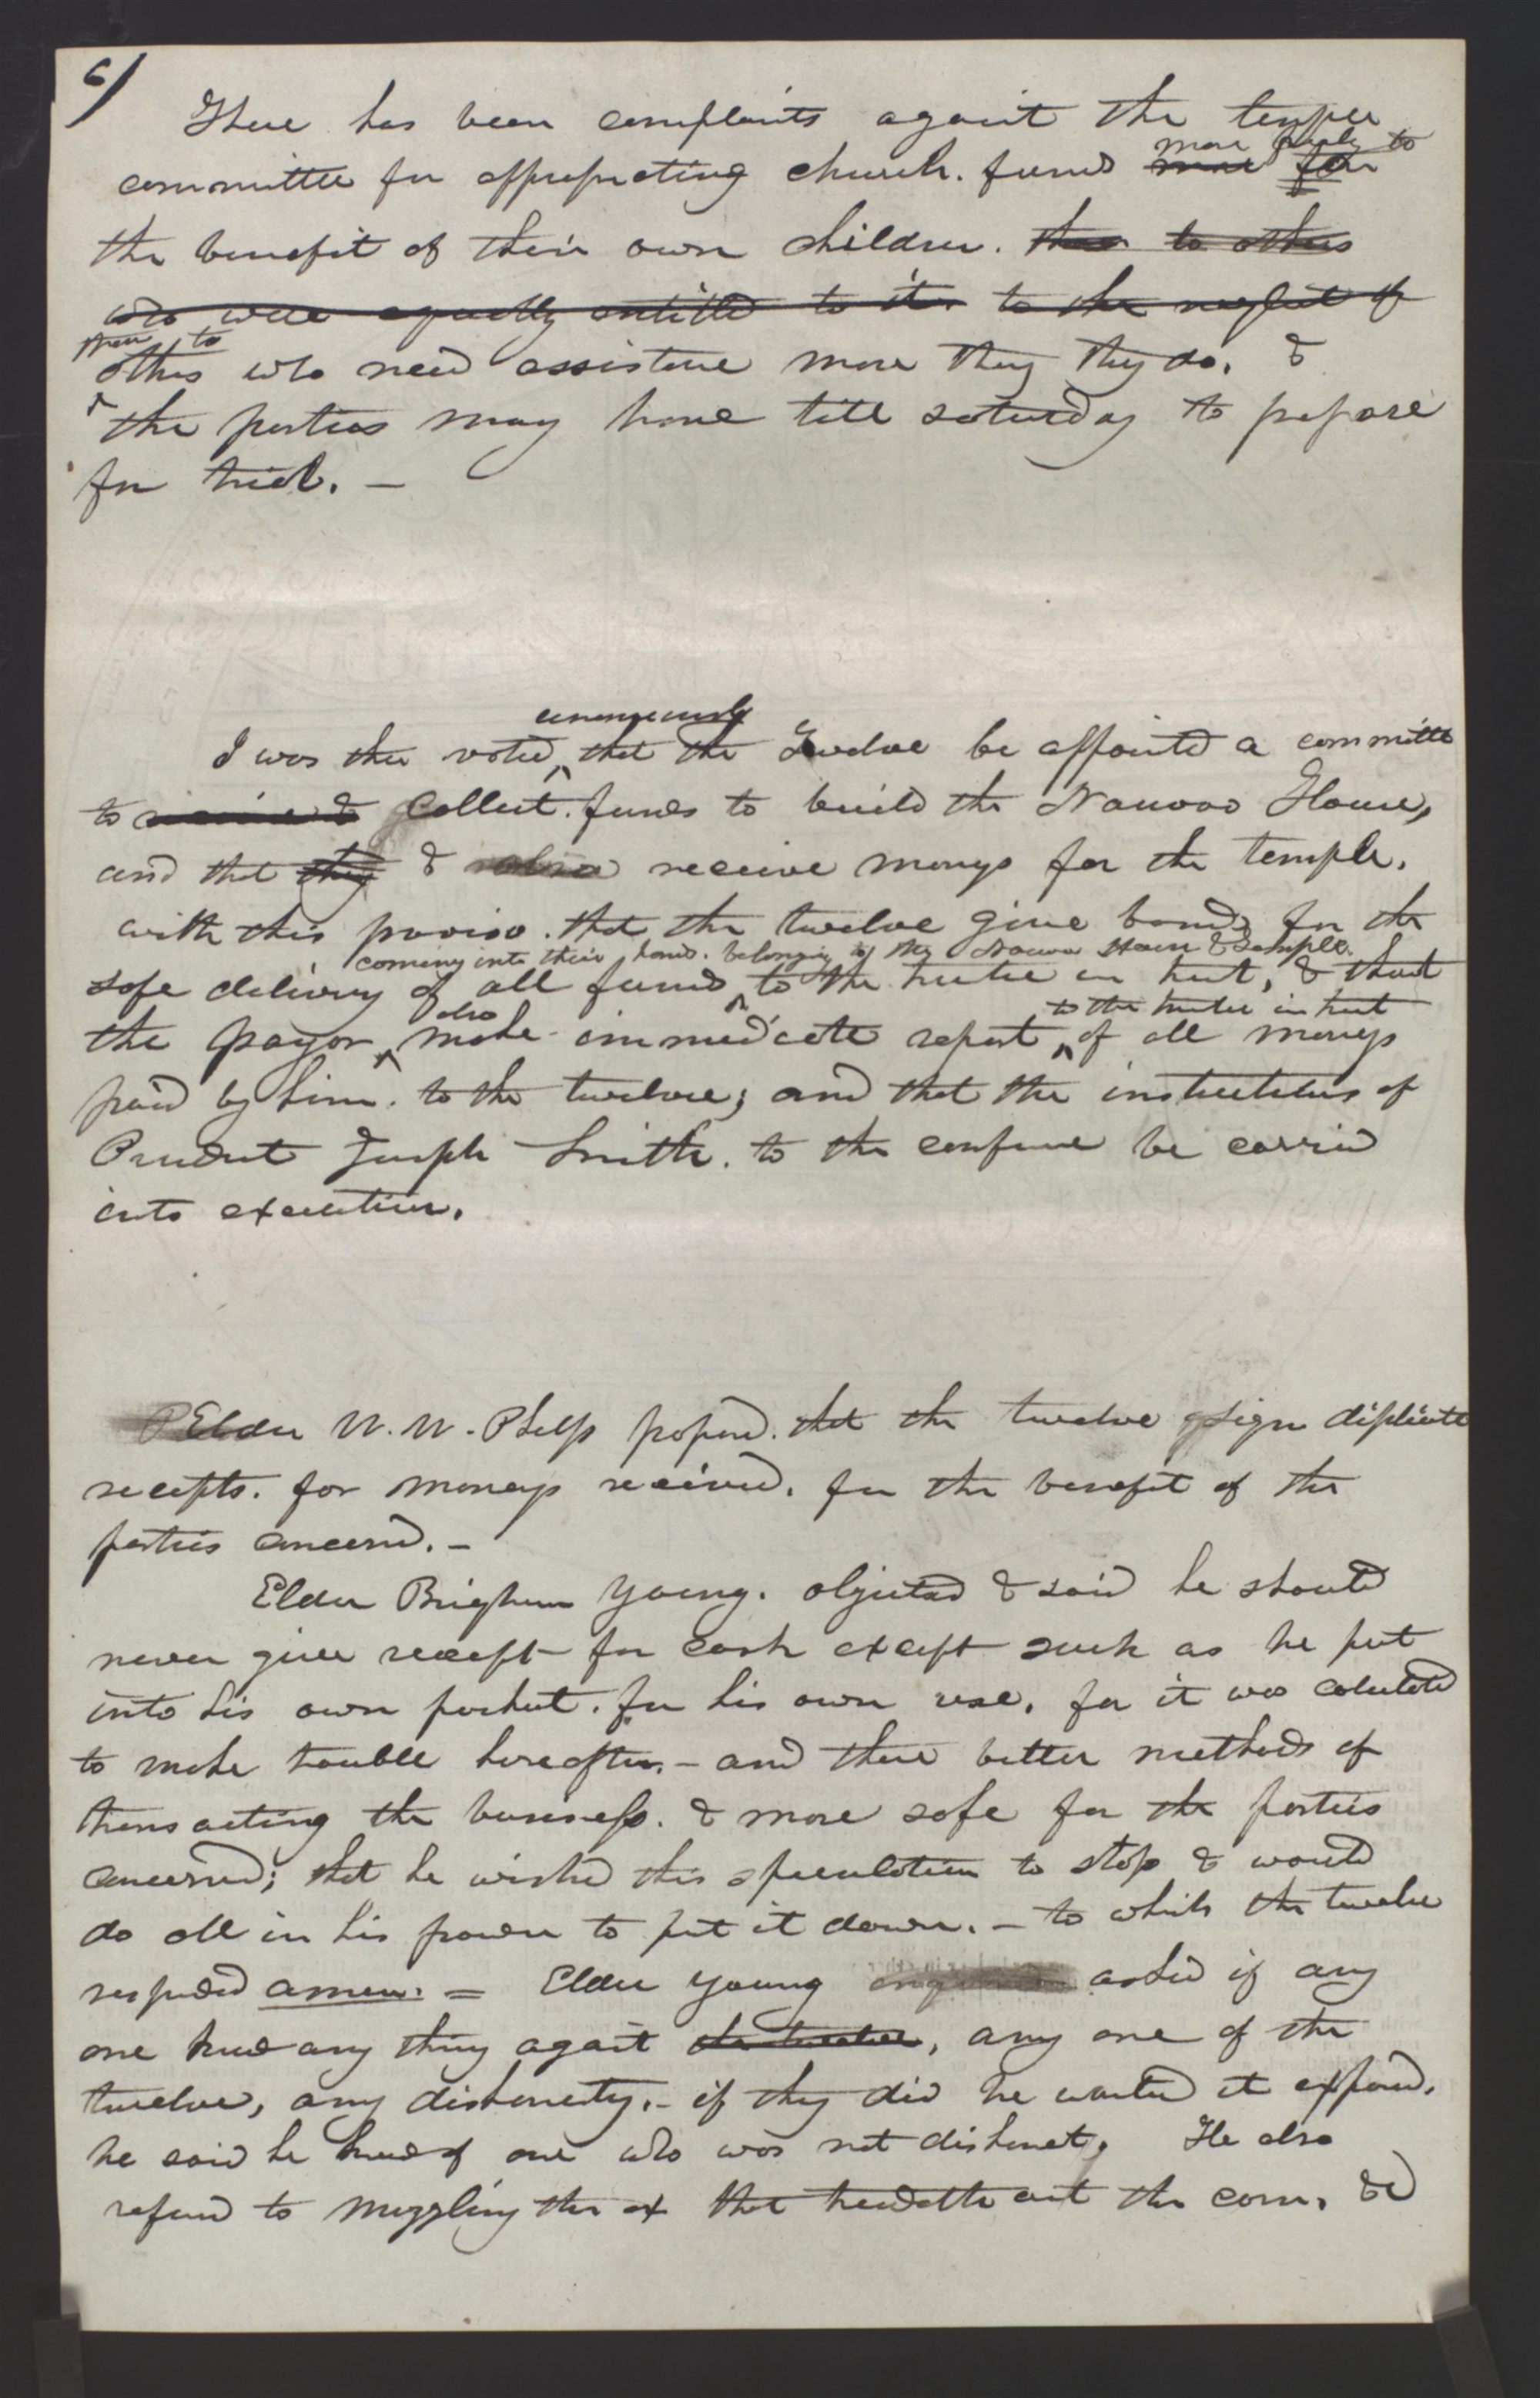 6/
There has been complaints against the temple
more freely to
committee for appropriating church. funds more for
the benefit of their own children. than to others
who were equally entitled to it. to the neglect of
than to
others who need assistance more they they do. &
the parties may have till saturday to prepare
for trial. —
unanimously
I was then voted, that the Twelve be appointed a committee
to receive & Collect. funds to build the Nauvoo House,
and that they & also receive moneys for the temple.
with this proviso. that the twelve give bonds for the
coming into their hands. belonging to the Nauvoo House & Temple.
safe delivery of all funds to the trustee in trust, & that
also
to the trustee in trust
the payor make immediate report of all moneys
paid by him. to the twelve; and that the instructions of
President Joseph Smith. to the conference be carried
into execution.
Elder W. W. Phelps proposed. that the twelve sign duplicate
receipts. for moneys received. for the benefit of the
parties concerned. —
Elder Brigham Young. objected & said he should
never give receipt for cash except such as he put
into his own pocket. for his own use. for it was calculated
to make trouble hereafter. — and there better methods of
transacting the business. & more safe for the parties
concerned; that he wished this speculation to stop & would
do all in his power to put it down. — to which the twelve
responded amen. = Elder Young asked if any
one knew any thing against the twelve, any one of the
twelve, any dishonesty. — if they did he wanted it exposed.
he said he knew of one who was not dishonest. He also
refered to muzzling the ox that treadeth out the corn. &c